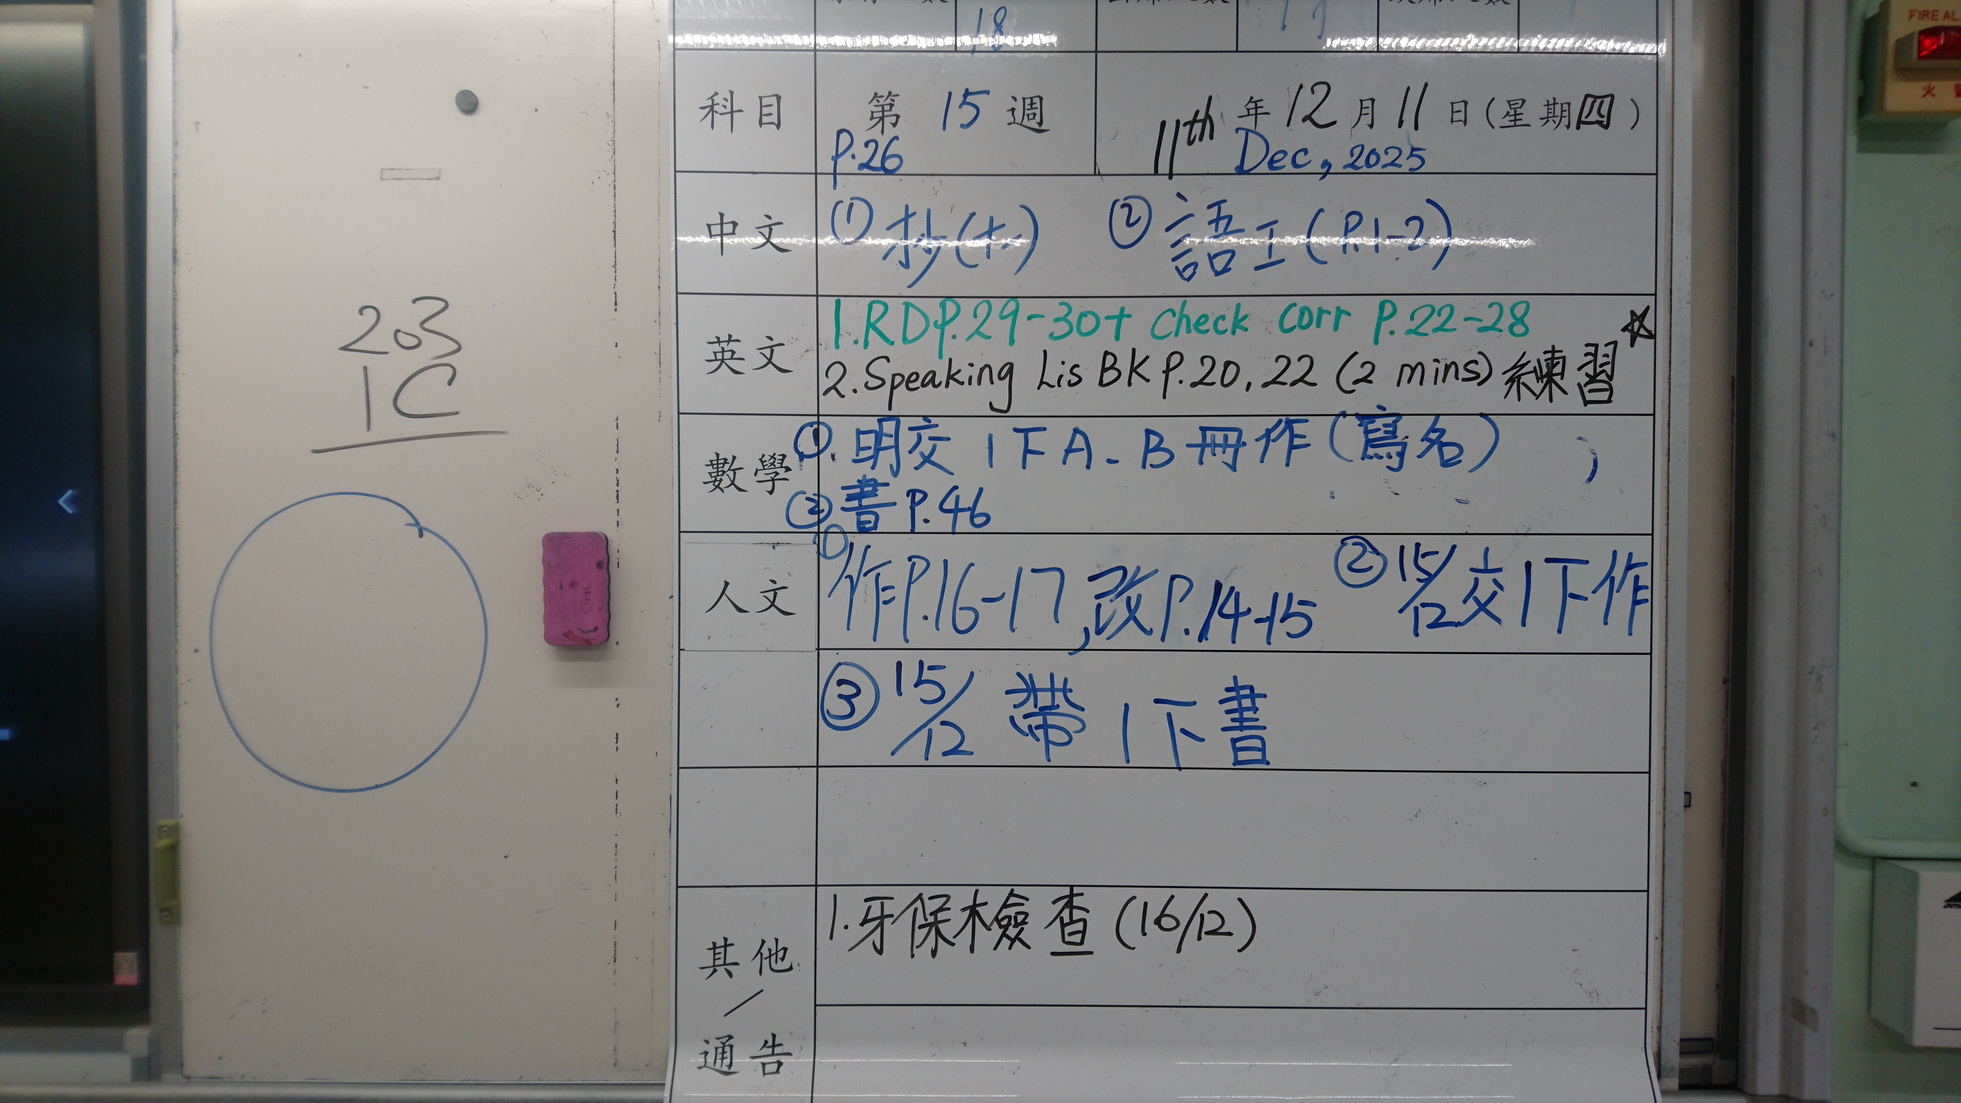 203
1C
18
科目 第 15 週 年 12 月 11 日 (星期四)
P.26 11th Dec, 2025
中文 ① 抄(十二) ② 語工 (P.1-2)
英文 1. RD P.29-30 + check corr P.22-28
2. Speaking Lis BK P.20, 22 (2 mins) 練習 ☆
數學 ①. 明交 1下A-B冊作 (寫名) ;
② 書 P.46
人文 ① 作P.16-17, 改P.14-15 ② 15/12 交1下作
③ 15/12 帶 1下書
其他/通告 1. 牙保檢查 (16/12)
FIRE AL
火